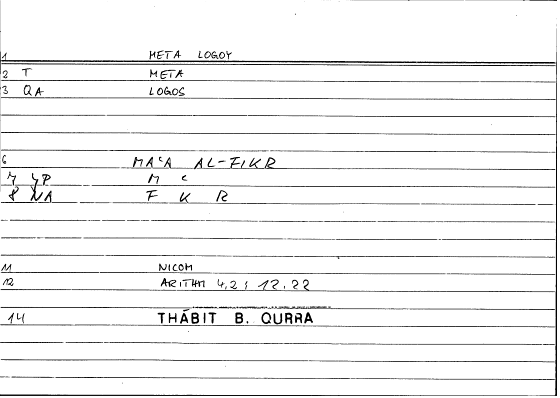 1 META LOGOY
2 T META
3 QA LOGOS
6 MAʿA AL-FIKR
7 M ʿ
8 NA F K R
11 NICOM
12 ARITHM 4,2; 12.22
14 THĀBIT B. QURRA